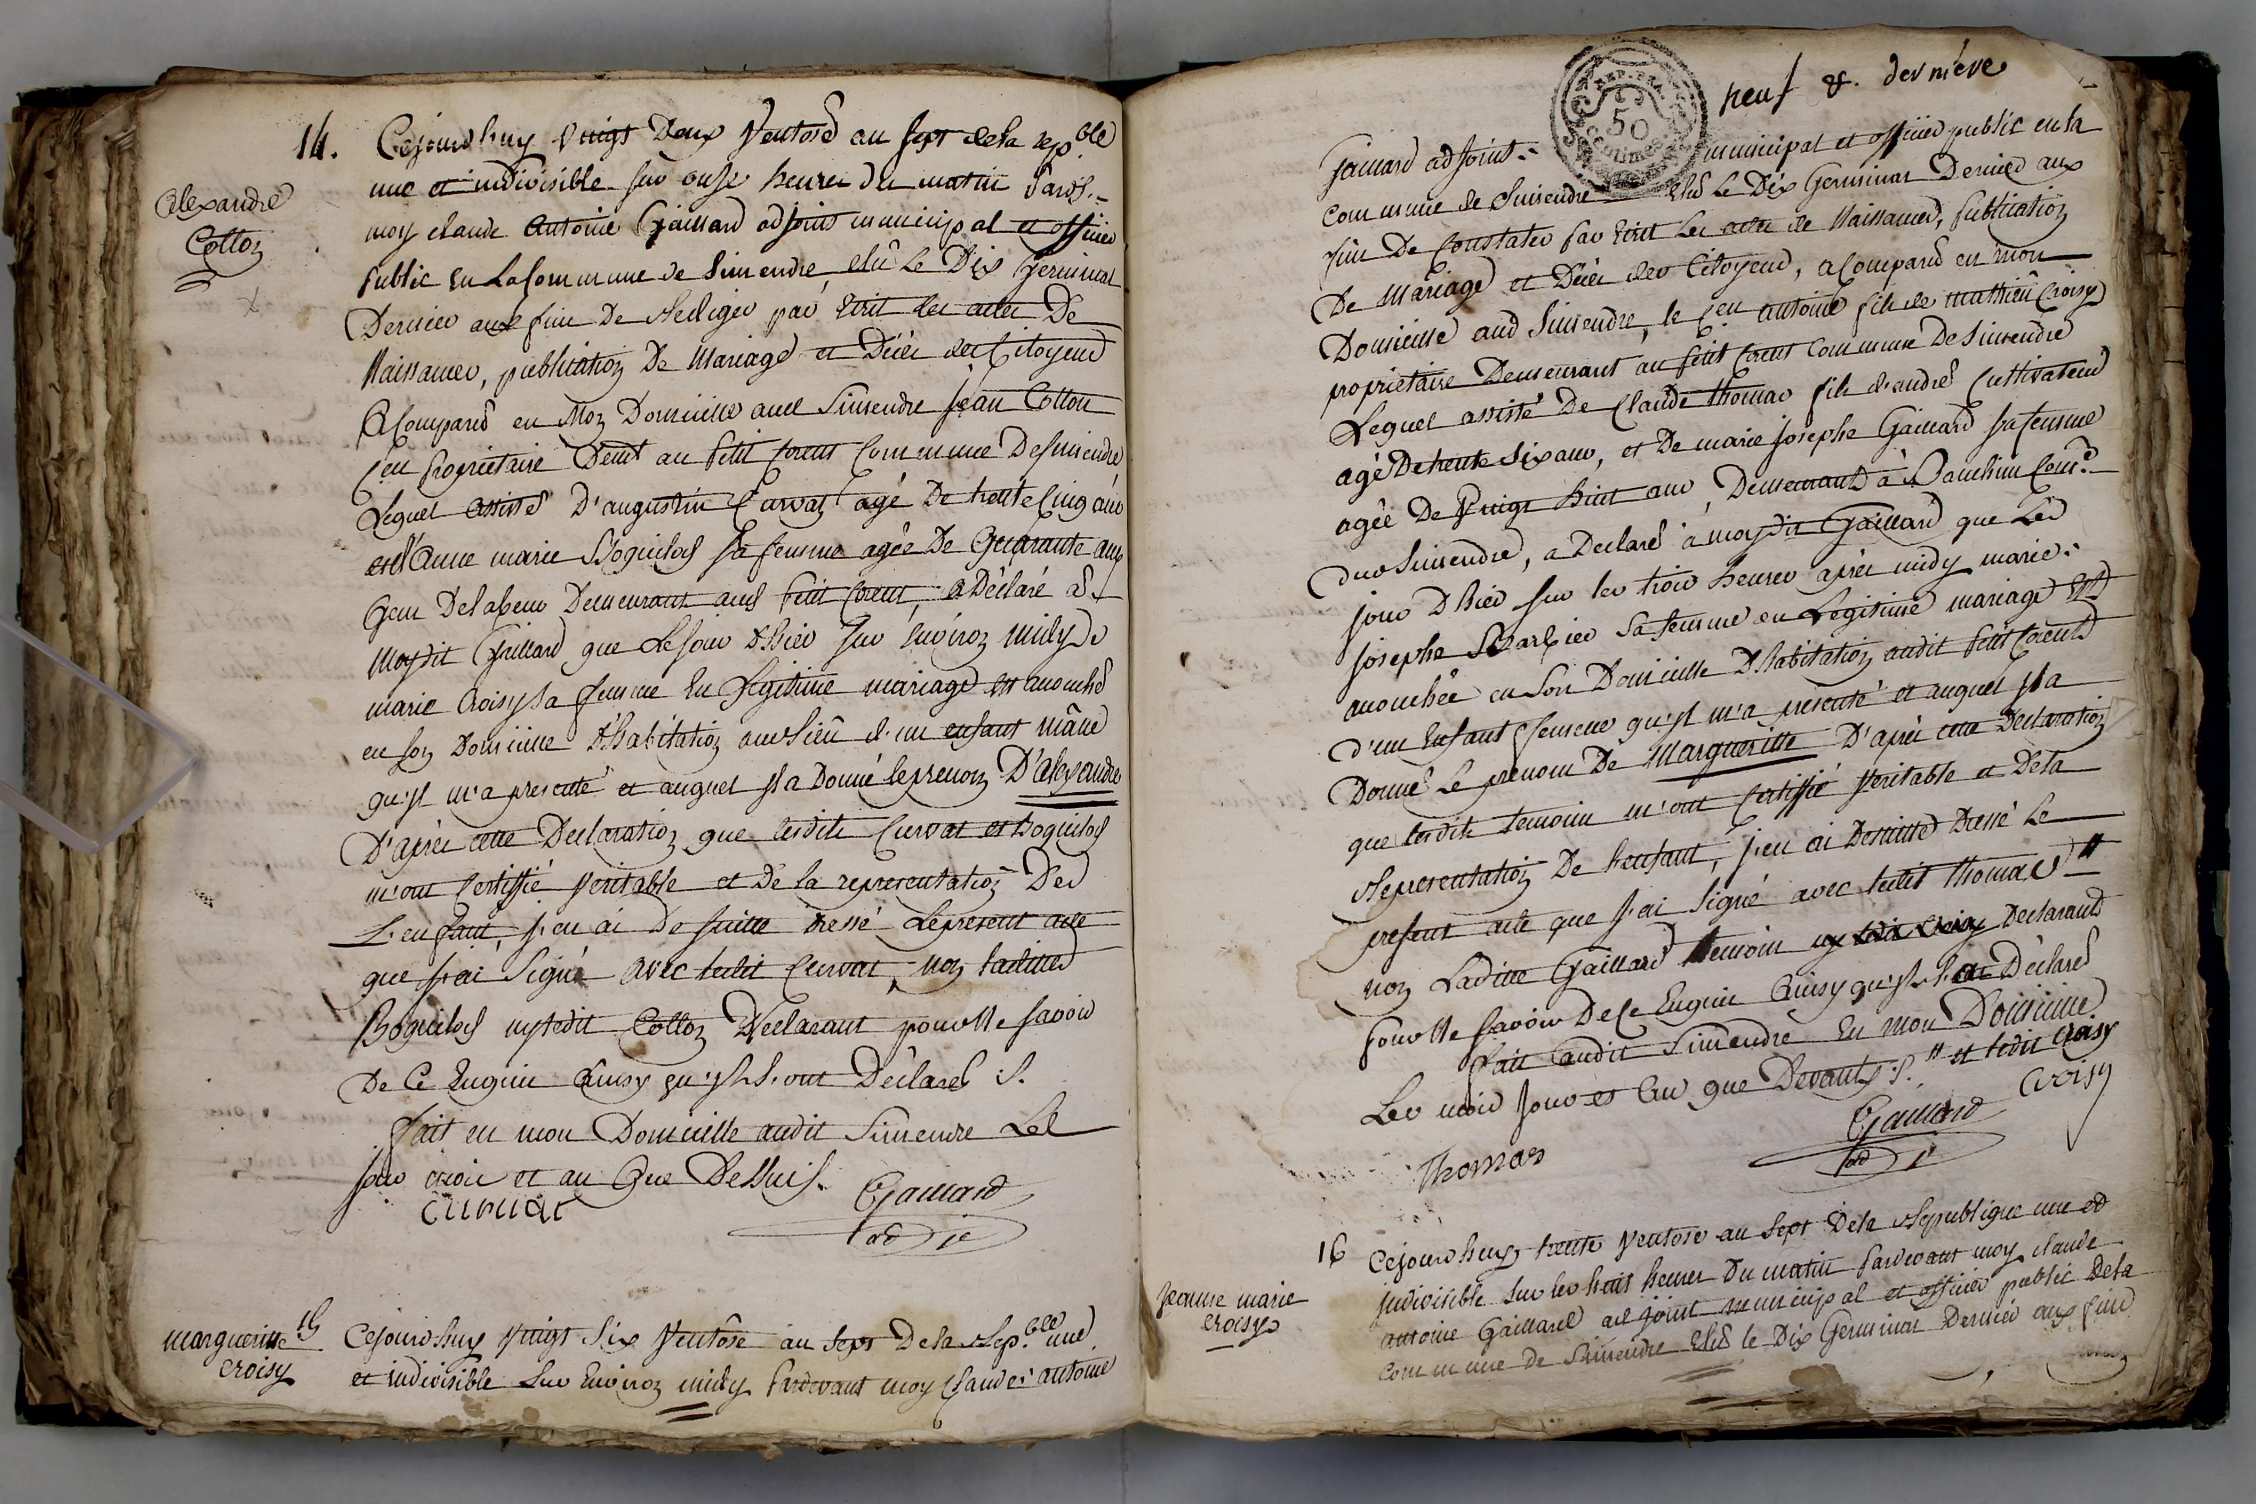 14. Cejourdhuy Vingt Deux Ventose an sept dela rep.ble
une et indivisible sur onze heures du matin Pard.-
Alexandre
Collon
moy claude Antoine Gaillard adjoint municipal et officier
Public En La Commune de Simendre, elû Le Dix Germinal
Dernier aux fins De Rediger par Ecrit les actes De
Naissances, publication De Mariage et Décès des Citoyens
A Comparû en Mon Domicille aud Simendre Jean Collon
Propriétaire Demt au Petit Corent Commune De Simendre
Lequel assisté D'augustin Curvat agé De trente Cinq ans
et d'Anne marie Boquilod sa femme agée De Quarante ans
Demeurant aud Petit Corent, a Déclaré a
Moydit Gaillard que Le Jour d'hier sur Environ midy
marie Croisy sa femme En Legitime mariage est accouchée
en son Domicille d'habitation aud Lieu d'un enfant mâle
qu'il m'a presenté et auquel il a Donné le prenom D'alexandre
D'après cette Declaration que lesdits Curvat et Boquilod
m'ont Certiffié Veritable et De la representation Dud
L'enfant, J'en ai De suitte dressé Le present acte
que J'ai Signé avec ledit Curvat, non ladite
Boquilod ny ledit Collon Declarant pour ne savoir
De Ce Enquis Ainsy qu'ils L'ont Déclaré ./.
fait en mon Domicille audit Simendre Les
Jour mois et an Que Dessus ./.
curvat
Gaillard
adjt
margueritte 15
croisy
Cejourdhuy Vingt Six Ventôse an sept De la Rep.ble une
et indivisible Sur Environ midy Pardevant moy Claude antoine
neuf & derniere
REP. FRA.
50
centimes
Gaillard adjoint municipal et officier public en la
commune de Simendre Elû Le Dix Germinal Dernier aux
fins De Constater par Ecrit Les actes de Naissances, Publication
De Mariage et Décès des Citoyens, a Comparû en mon
Domicille aud Simendre, le Cen Antoine fils de mathieu Croisy
proprietaire Demeurant au Petit Corent commune De Simendre
Lequel assisté De Claude Thomas fils d'andré Cultivateur
agé De trente Six ans, et De marie Josephe Gaillard sa femme
agée De Vingt huit ans, Demeurants à
dud Simendre, a Declaré à moydit Gaillard que Le
jour D'hier sur les trois heures après midy marie
Josephe sa femme en Legitime mariage Est
accouchée en Son Domicille D'habitation audit Petit Corent
d'un Enfant femelle qu'il m'a presenté et auquel il a
Donné Le prenom De Margueritte D'après cette Declaration
que lesdits temoins m'ont Certiffié Veritable et De la
Representation De L'enfant, J'en ai De suitte Dressé Le
present acte que J'ai Signé avec ledit Thomas "
non Ladite Gaillard temoin Declarant
pour ne savoir De Ce Enquis Ainsy qu'il L'a Déclaré
fait audit Simendre En mon Domicille
Les mois Jour et An que Devant ./. " et ledit Croisy
Thomas
Gaillard
adjt
croisy
16 Cejourdhuy trente Ventose an Sept De la Republique une et
Jeanne marie
croisy
Indivisible Sur les huit heures Du matin Pardevant moy claude
antoine Gaillard adjoint municipal et officier public De la
commune de Simendre Elû le Dix Germinal Dernier aux fins